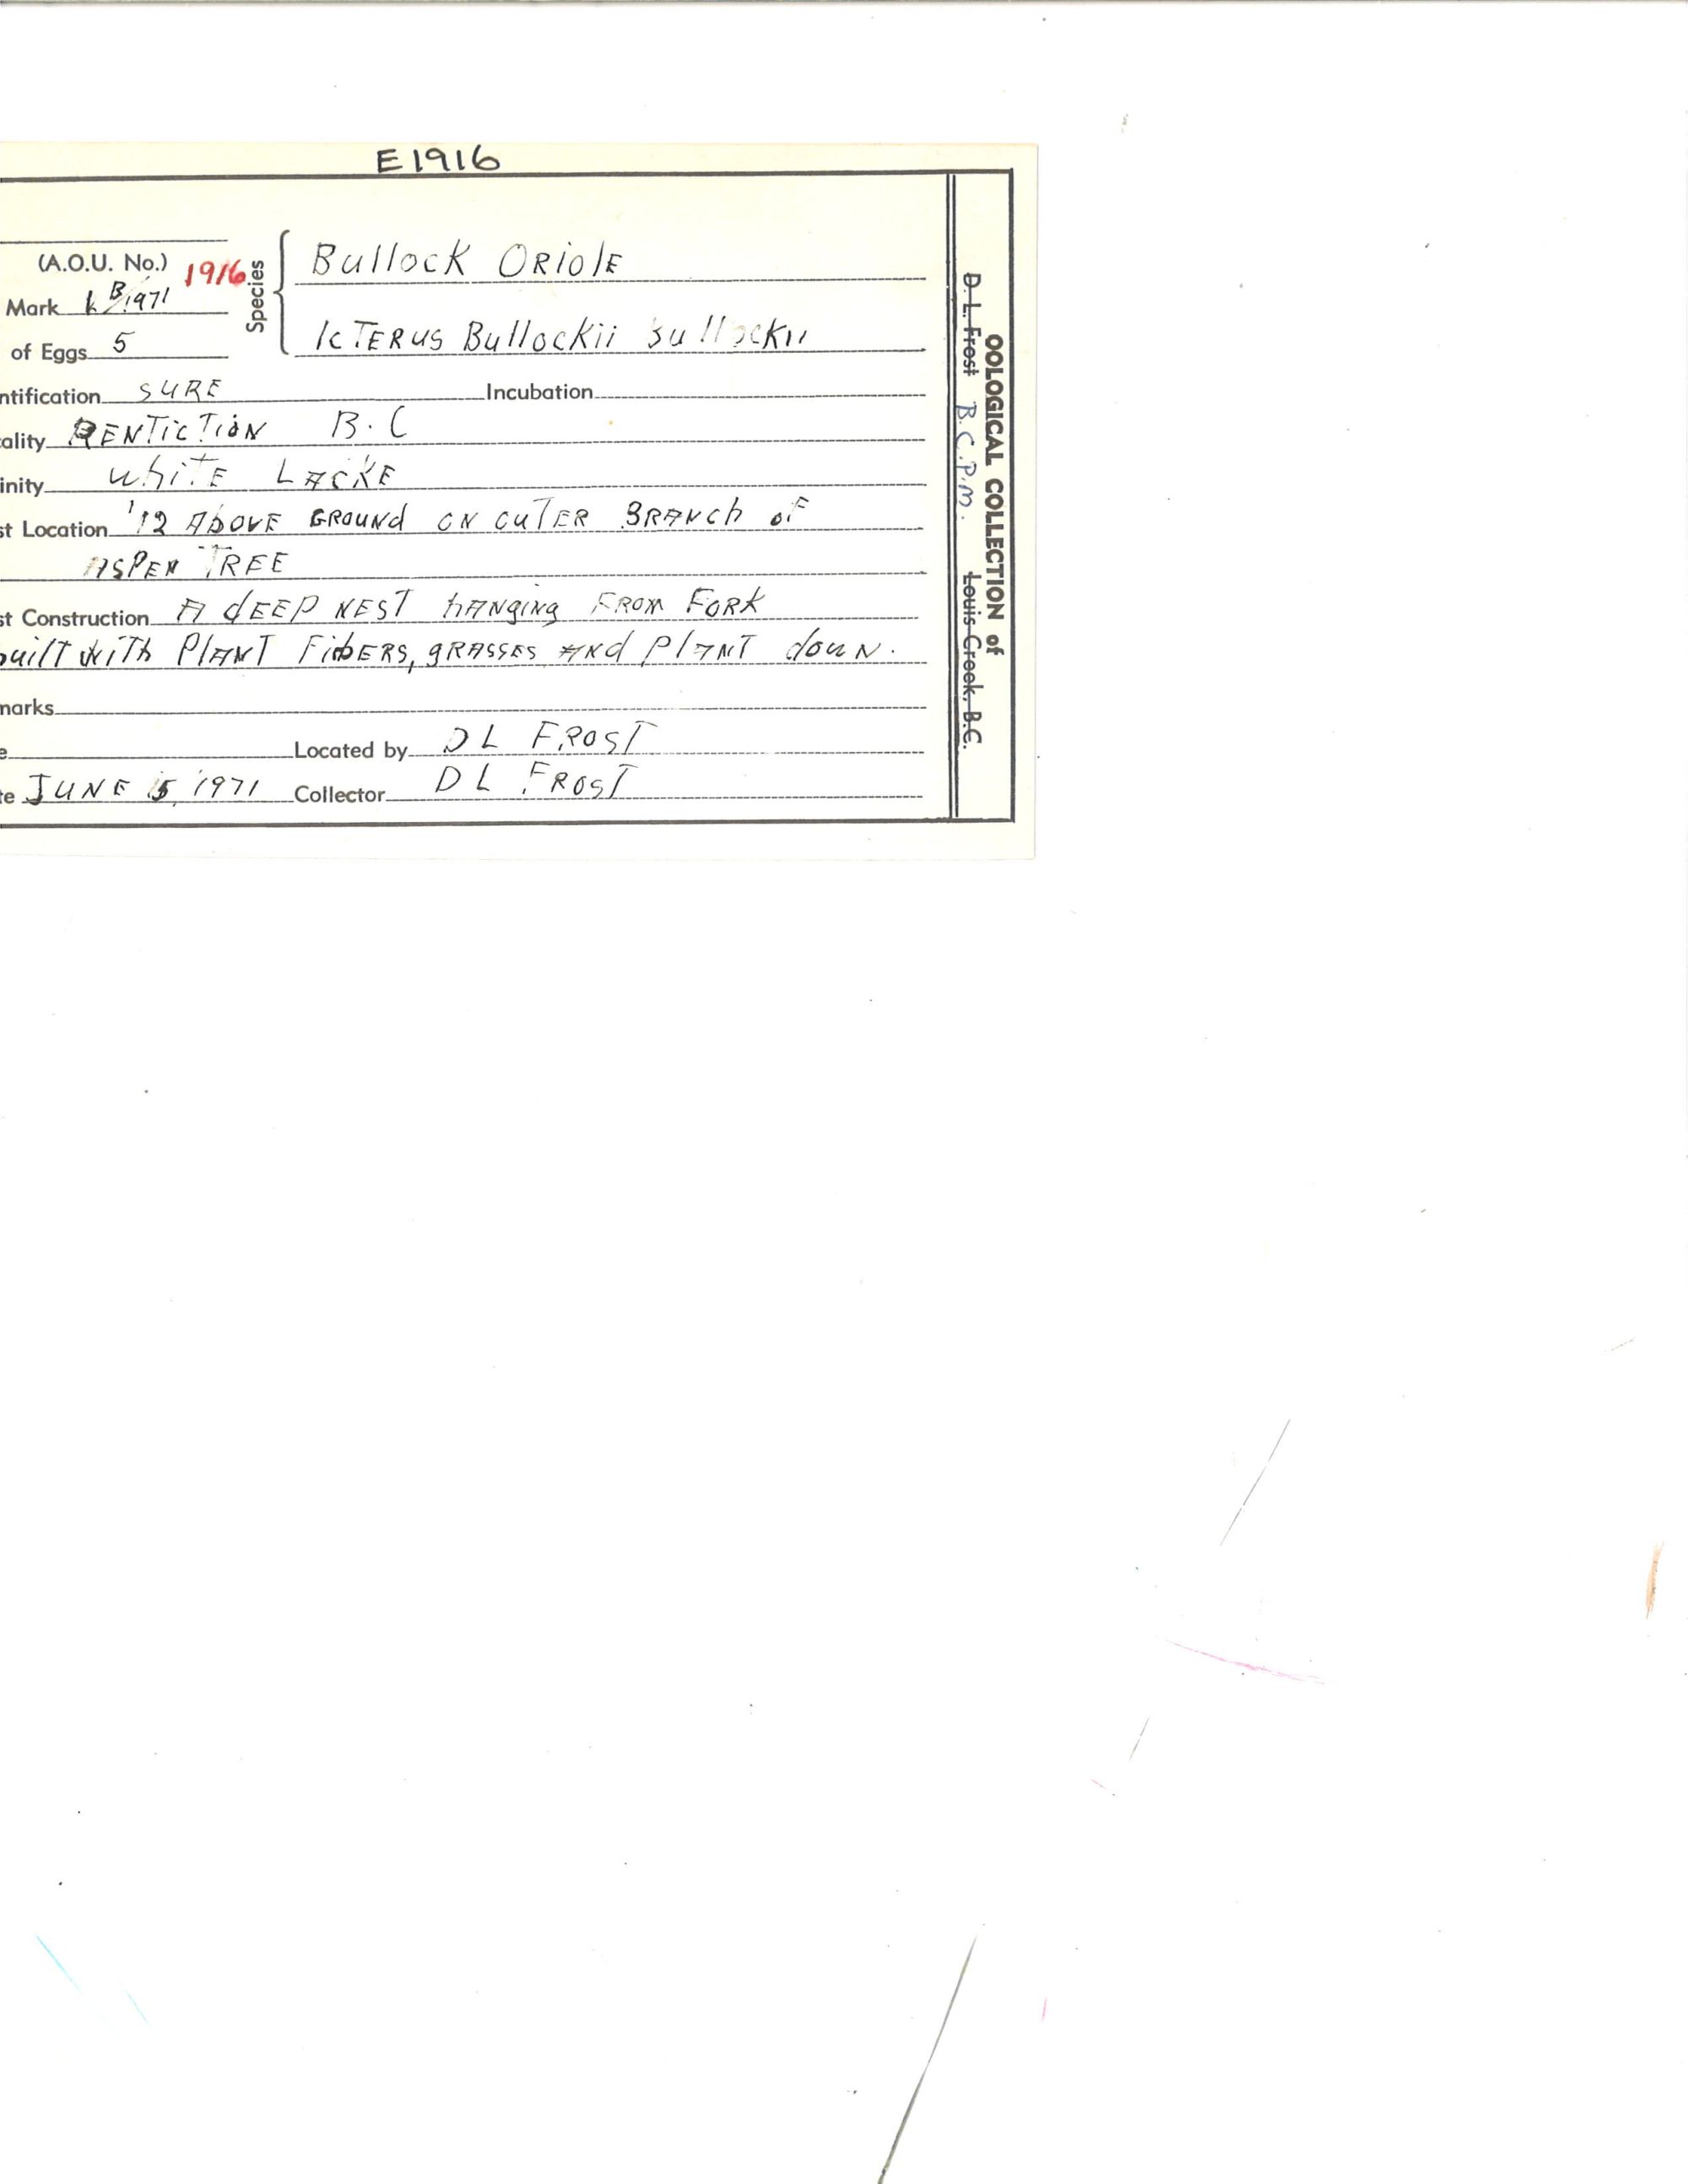 E1916
(A.O.U. No.) 1916
Species
Bullock ORiolE
Mark B/1971
IcTERUS Bullockii Bullockii
of Eggs 5
ntification SURE Incubation
ality PENTicTioN B.C
inity whiTE LACKE
st Location '12 AboVE GROUNd ON OUTER BRANch oF
ASPEN TREE
st Construction A dEEP NEST hANgiNg FROM FORK
built WiTh PlANT FibERS, gRASSES ANd PlANT dowN.
marks
e Located by D L FROST
te JUNE 5, 1971 Collector D L FROST
OOLOGICAL COLLECTION of
D. L. Frost B.C.P.M. Louis Creek, B.C.